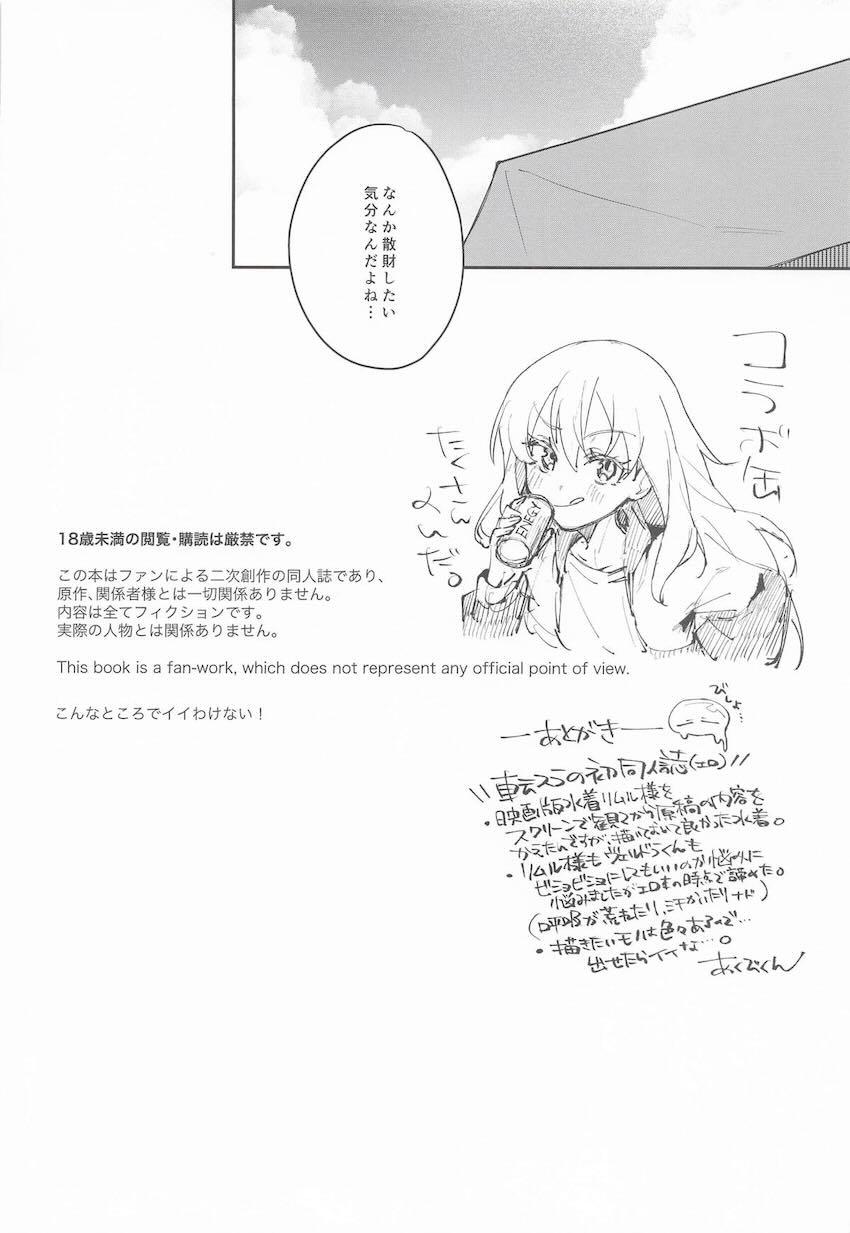 なんか散財したい
気分なんだよね…
コラボ缶
たくさん
よんだ。
ENERGY
18歳未満の閲覧・購読は厳禁です。
この本はファンによる二次創作の同人誌であり、
原作、関係者様とは一切関係ありません。
内容は全てフィクションです。
実際の人物とは関係ありません。
This book is a fan-work, which does not represent any official point of view.
こんなところでイイわけない！
びしょ…
あとがき
転スラの初同人誌(エロ)
・映画版水着リムル様を
スクリーンで観てから原稿の内容を
かえたんですが、描いておいて良かった水着。
・リムル様もヴェルドラくんも
ビショビショにしてもいいのか悩みに
悩みましたがエロ本の時点で諦めた。
(呼吸が荒れたり、汗かいたりナド)
・描きたいモノは色々あるので…
出せたらイイな…。
あくびくん